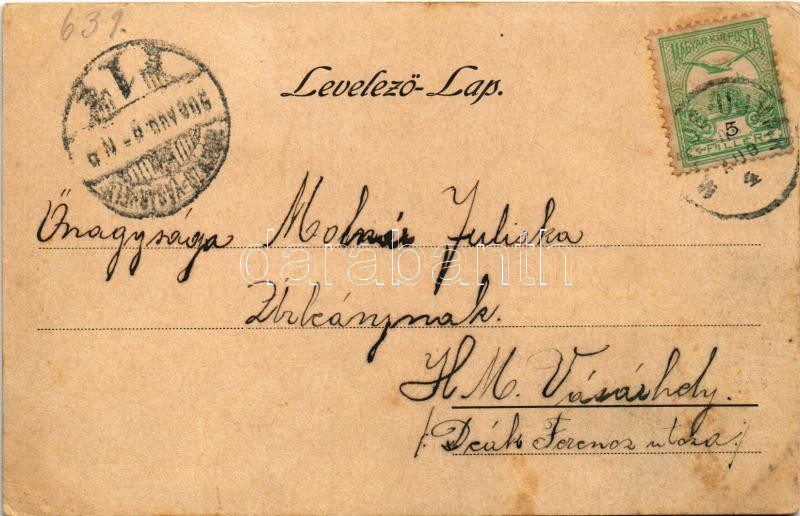 639.
Levelező-Lap.
MAGYAR KIR. POSTA
5
FILLÉR
AUG
4
908 AUG. 6 N 8
Őnagysága Molnár Juliska
Úrleánynak.
H. M. Vásárhely.
/: Deák Ferencz utcza :/
darabanth